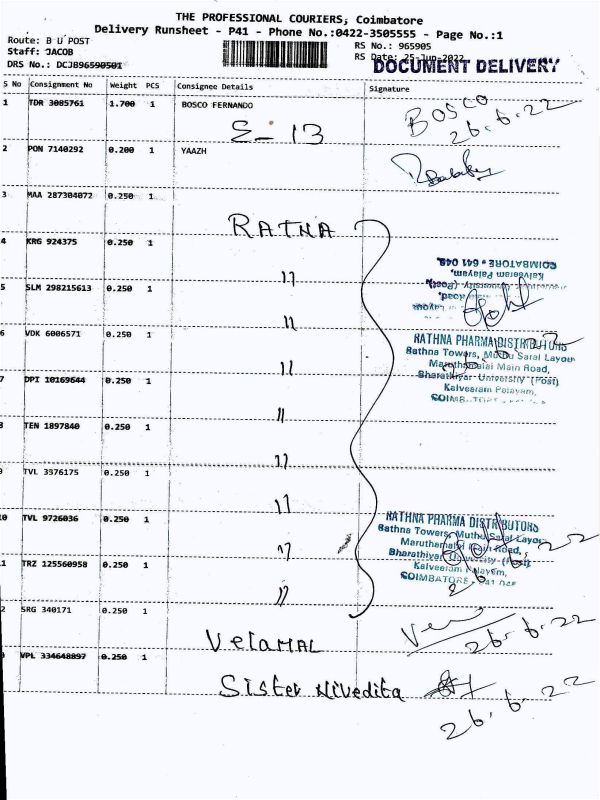 THE PROFESSIONAL COURIERS, Coimbatore
Delivery Runsheet - P41 - Phone No.:0422-3505555 - Page No.:1
Route: B U POST
Staff: JACOB
DRS No.: DCJ896590501
RS No.: 965905
RS Date: 25-Jun-2022
DOCUMENT DELIVERY
S No Consignment No Weight PCS Consignee Details Signature
1 TDR 3085761 1.700 1 BOSCO FERNANDO BOSCO
26.6.22
E-13
2 PON 7140292 0.200 1 YAAZH
3 MAA 287304072 0.250 1
RATNA
4 KRG 924375 0.250 1
COIMBATORE - 641 046.
Kalveeram Palayam,
5 SLM 298215613 0.250 1 "
6 VDK 6006571 0.250 1 "
RATHNA PHARMA DISTRIBUTORS
Rathna Towers, Muthu Saral Layout
Maruthamalai Main Road,
Bharathiyar University (Post)
Kalveeram Palayam,
COIMBATORE
7 DPI 10169644 0.250 1 "
8 TEN 1897840 0.250 1 "
9 TVL 3376175 0.250 1 "
10 TVL 9726036 0.250 1 "
RATHNA PHARMA DISTRIBUTORS
Rathna Towers, Muthu Saral Layou
Maruthamalai Main Road,
Bharathiyar University (Post)
Kalveeram Palayam,
COIMBATORE - 641 046
26.6.22
11 TRZ 125560958 0.250 1 "
12 SRG 340171 0.250 1 "
VelaMAL
26.6.22
13 VPL 334648897 0.250 1
Sister Nivedita
26.6.22